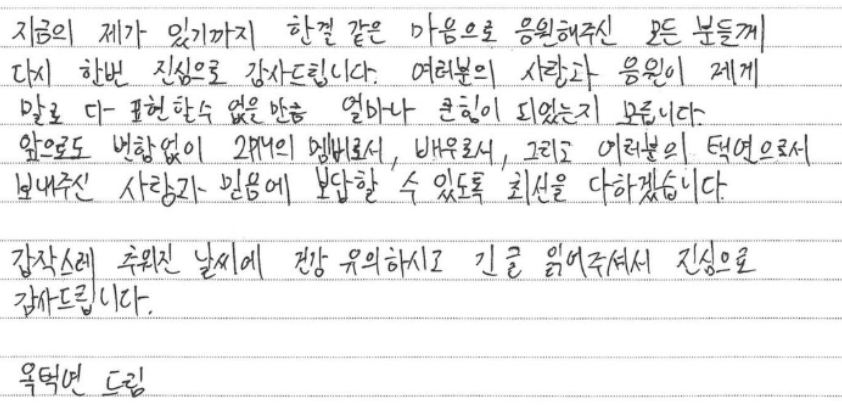 지금의 제가 있기까지 한결 같은 마음으로 응원해주신 모든 분들께
다시 한번 진심으로 감사드립니다. 여러분의 사랑과 응원이 제게
말로 다 표현할 수 없을 만큼 얼마나 큰 힘이 되었는지 모릅니다.
앞으로도 변함없이 2PM의 멤버로서, 배우로서, 그리고 여러분의 택연으로서
보내주신 사랑과 믿음에 보답할 수 있도록 최선을 다하겠습니다.
갑작스레 추워진 날씨에 건강 유의하시고 긴 글 읽어주셔서 진심으로
감사드립니다.
옥택연 드림